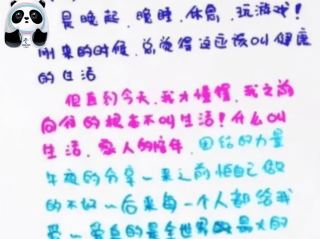 是晚起，晚睡，休息，玩游戏！
刚来的时候，总觉得这应该叫健康
的生活
但直到今天，我才懂得，我之前
向往的根本不叫生活！什么叫
生活，家人的陪伴，团结的力量
午夜的分享一来之前怕自己做
的不好一后来每一个人都给我
爱一爱真的是全世界最大的